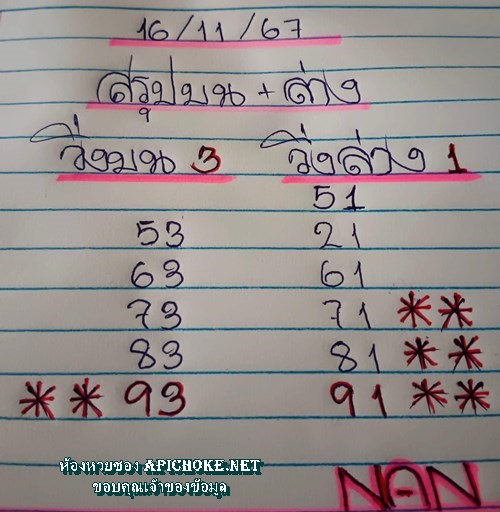 16/11/67
สรุปบน + ล่าง
วิ่งบน 3 วิ่งล่าง 1
51
53 21
63 61
73 71 **
83 81 **
** 93 91 **
ห้องหวยของ APICHOKE.NET
ขอบคุณเจ้าของข้อมูล
NAN